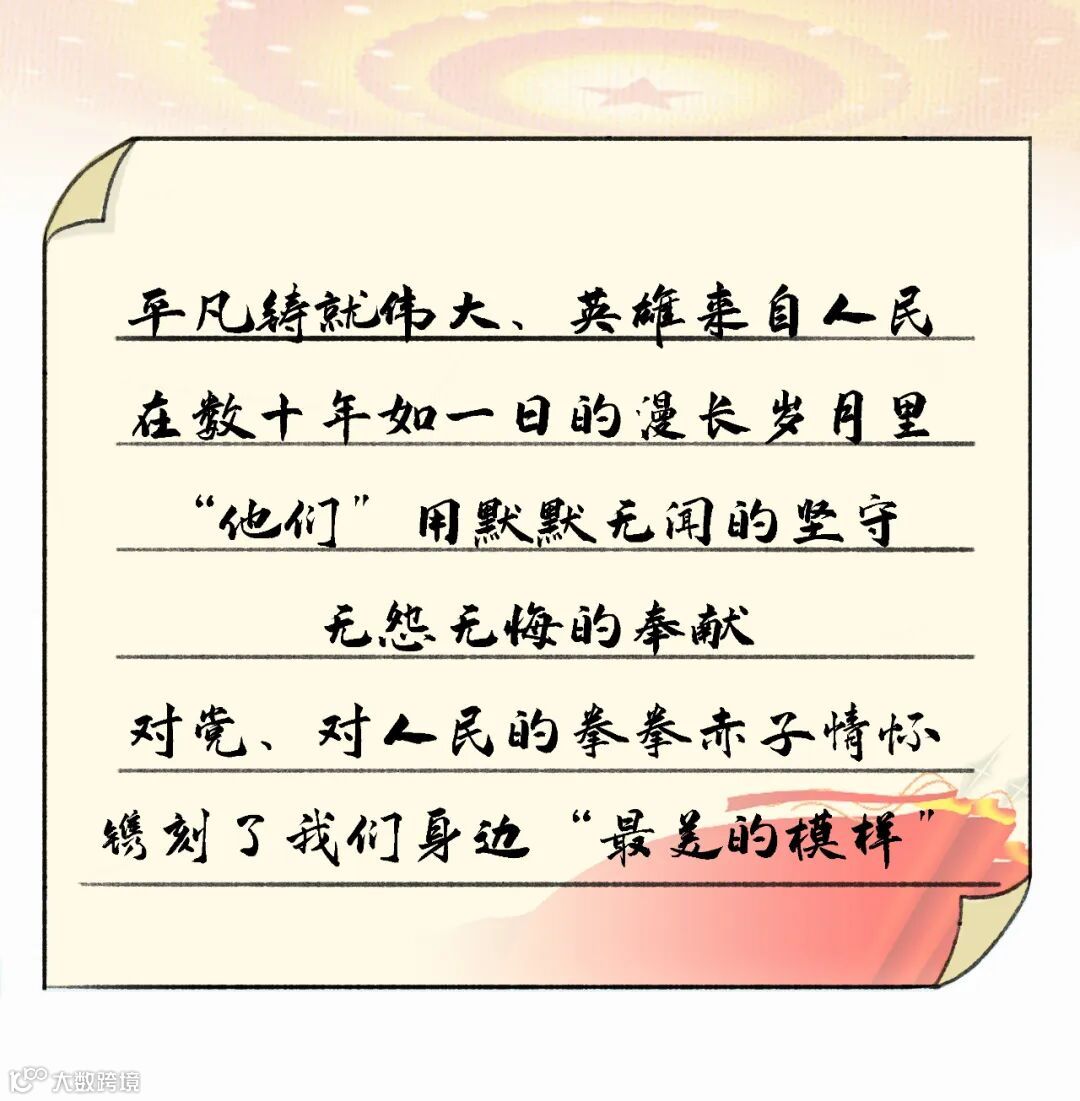 平凡铸就伟大、英雄来自人民
在数十年如一日的漫长岁月里
“他们”用默默无闻的坚守
无怨无悔的奉献
对党、对人民的拳拳赤子情怀
镌刻了我们身边“最美的模样”
大数跨境